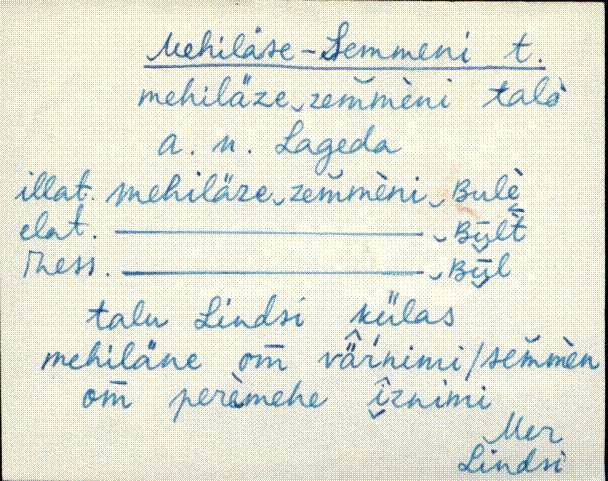 Mehiläse-Semmeni t.
mehiläze‿zem̆mèni talò
a. n. Lageda
illat. mehiläze‿zem̆mèni‿Bulè
elat. ——————‿Bŭlt̀
iness. ——————‿Bŭl
talu Lindsi külas
mehiläne om̄ vä̂r´nimi/sem̆mèn
om̄ perèmehe îznimi
Mer
Lindsi